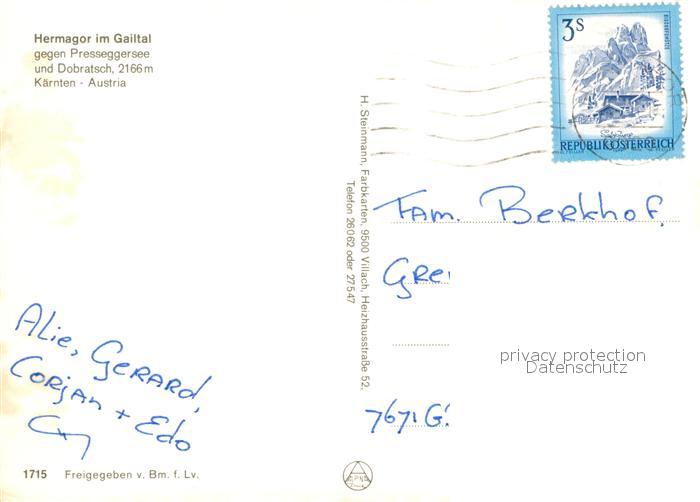 Hermagor im Gailtal
gegen Presseggersee
und Dobratsch, 2166 m
Kärnten - Austria
Alie, GERARD,
Corjan + Edo
1715 Freigegeben v. Bm. f. Lv.
H. Steinmann, Farbkarten, 9500 Villach, Heizhausstraße 52,
Telefon 26062 oder 27547
3S
REPUBLIK ÖSTERREICH
Fam. Berkhof.
Gre
7671 G
privacy protection
Datenschutz